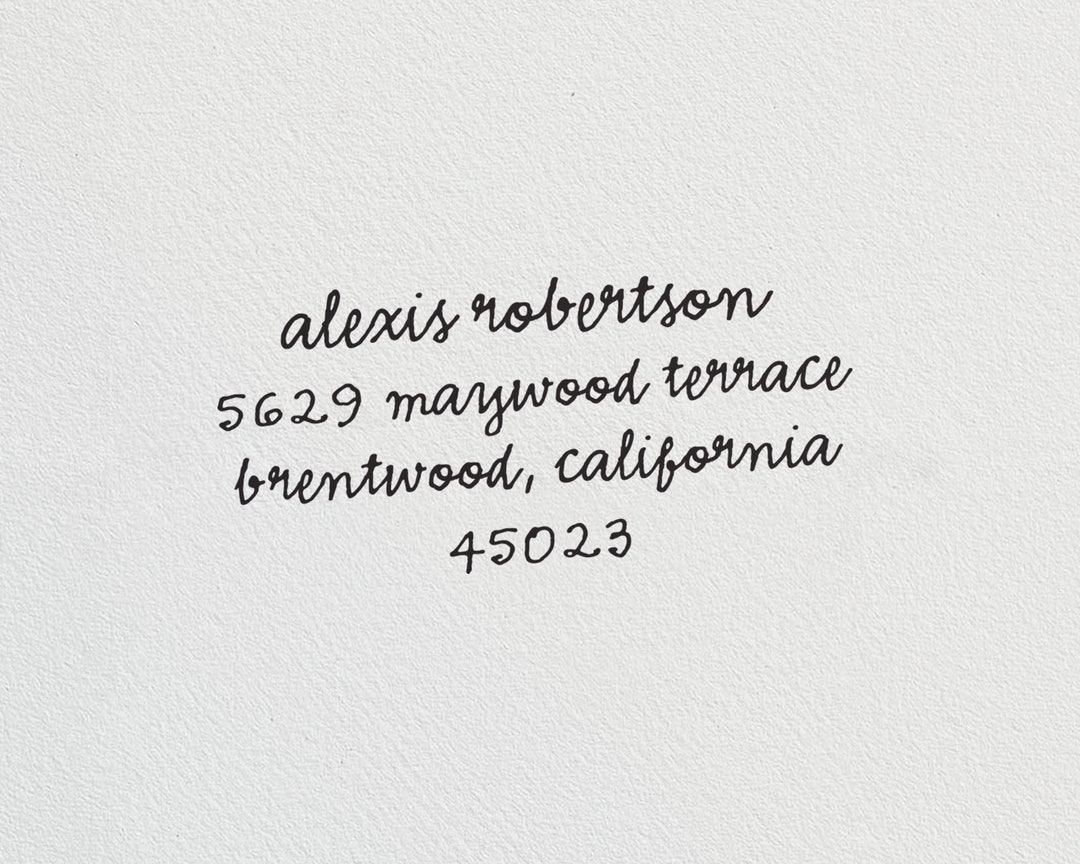 alexis robertson
5629 maywood terrace
brentwood, california
45023